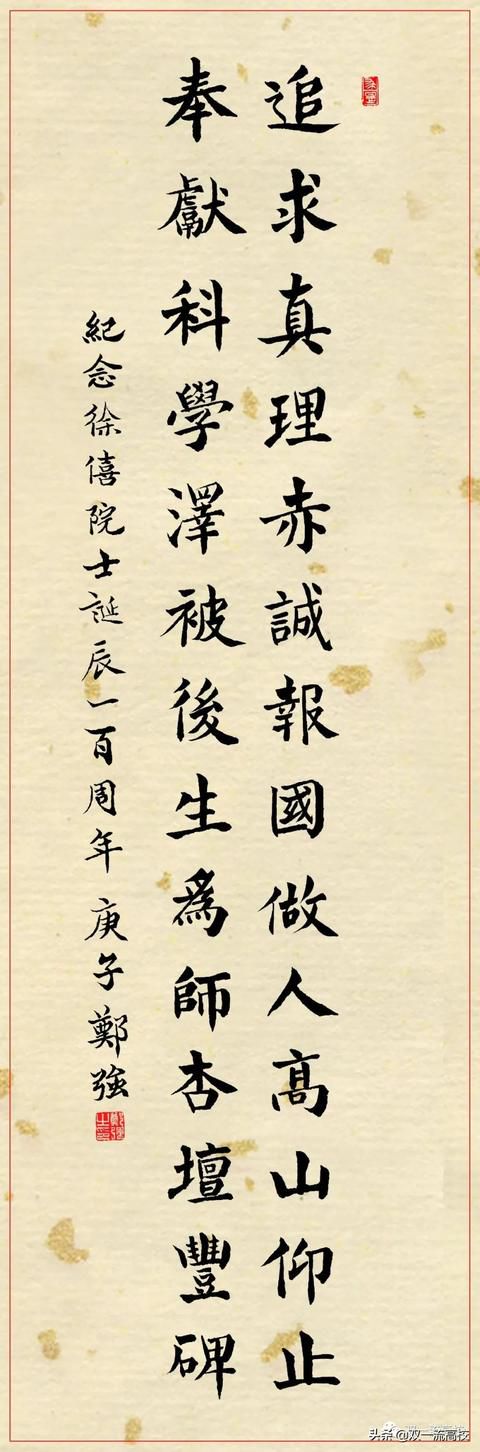 追求真理赤誠報國做人高山仰止
奉獻科學澤被後生為師杏壇豐碑
紀念徐僖院士誕辰一百周年 庚子鄭強
头条@双一流高校